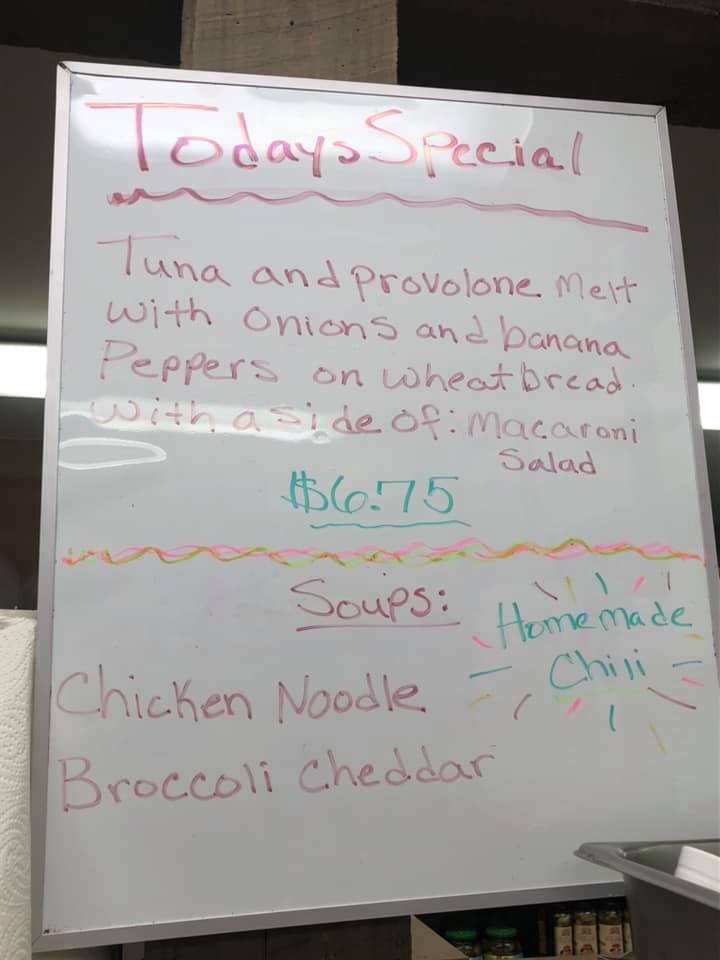 Todays Special
Tuna and provolone Melt
with onions and banana
Peppers on wheat bread.
with a side of: Macaroni
Salad
$6.75
Soups:
Homemade
Chili
Chicken Noodle
Broccoli cheddar